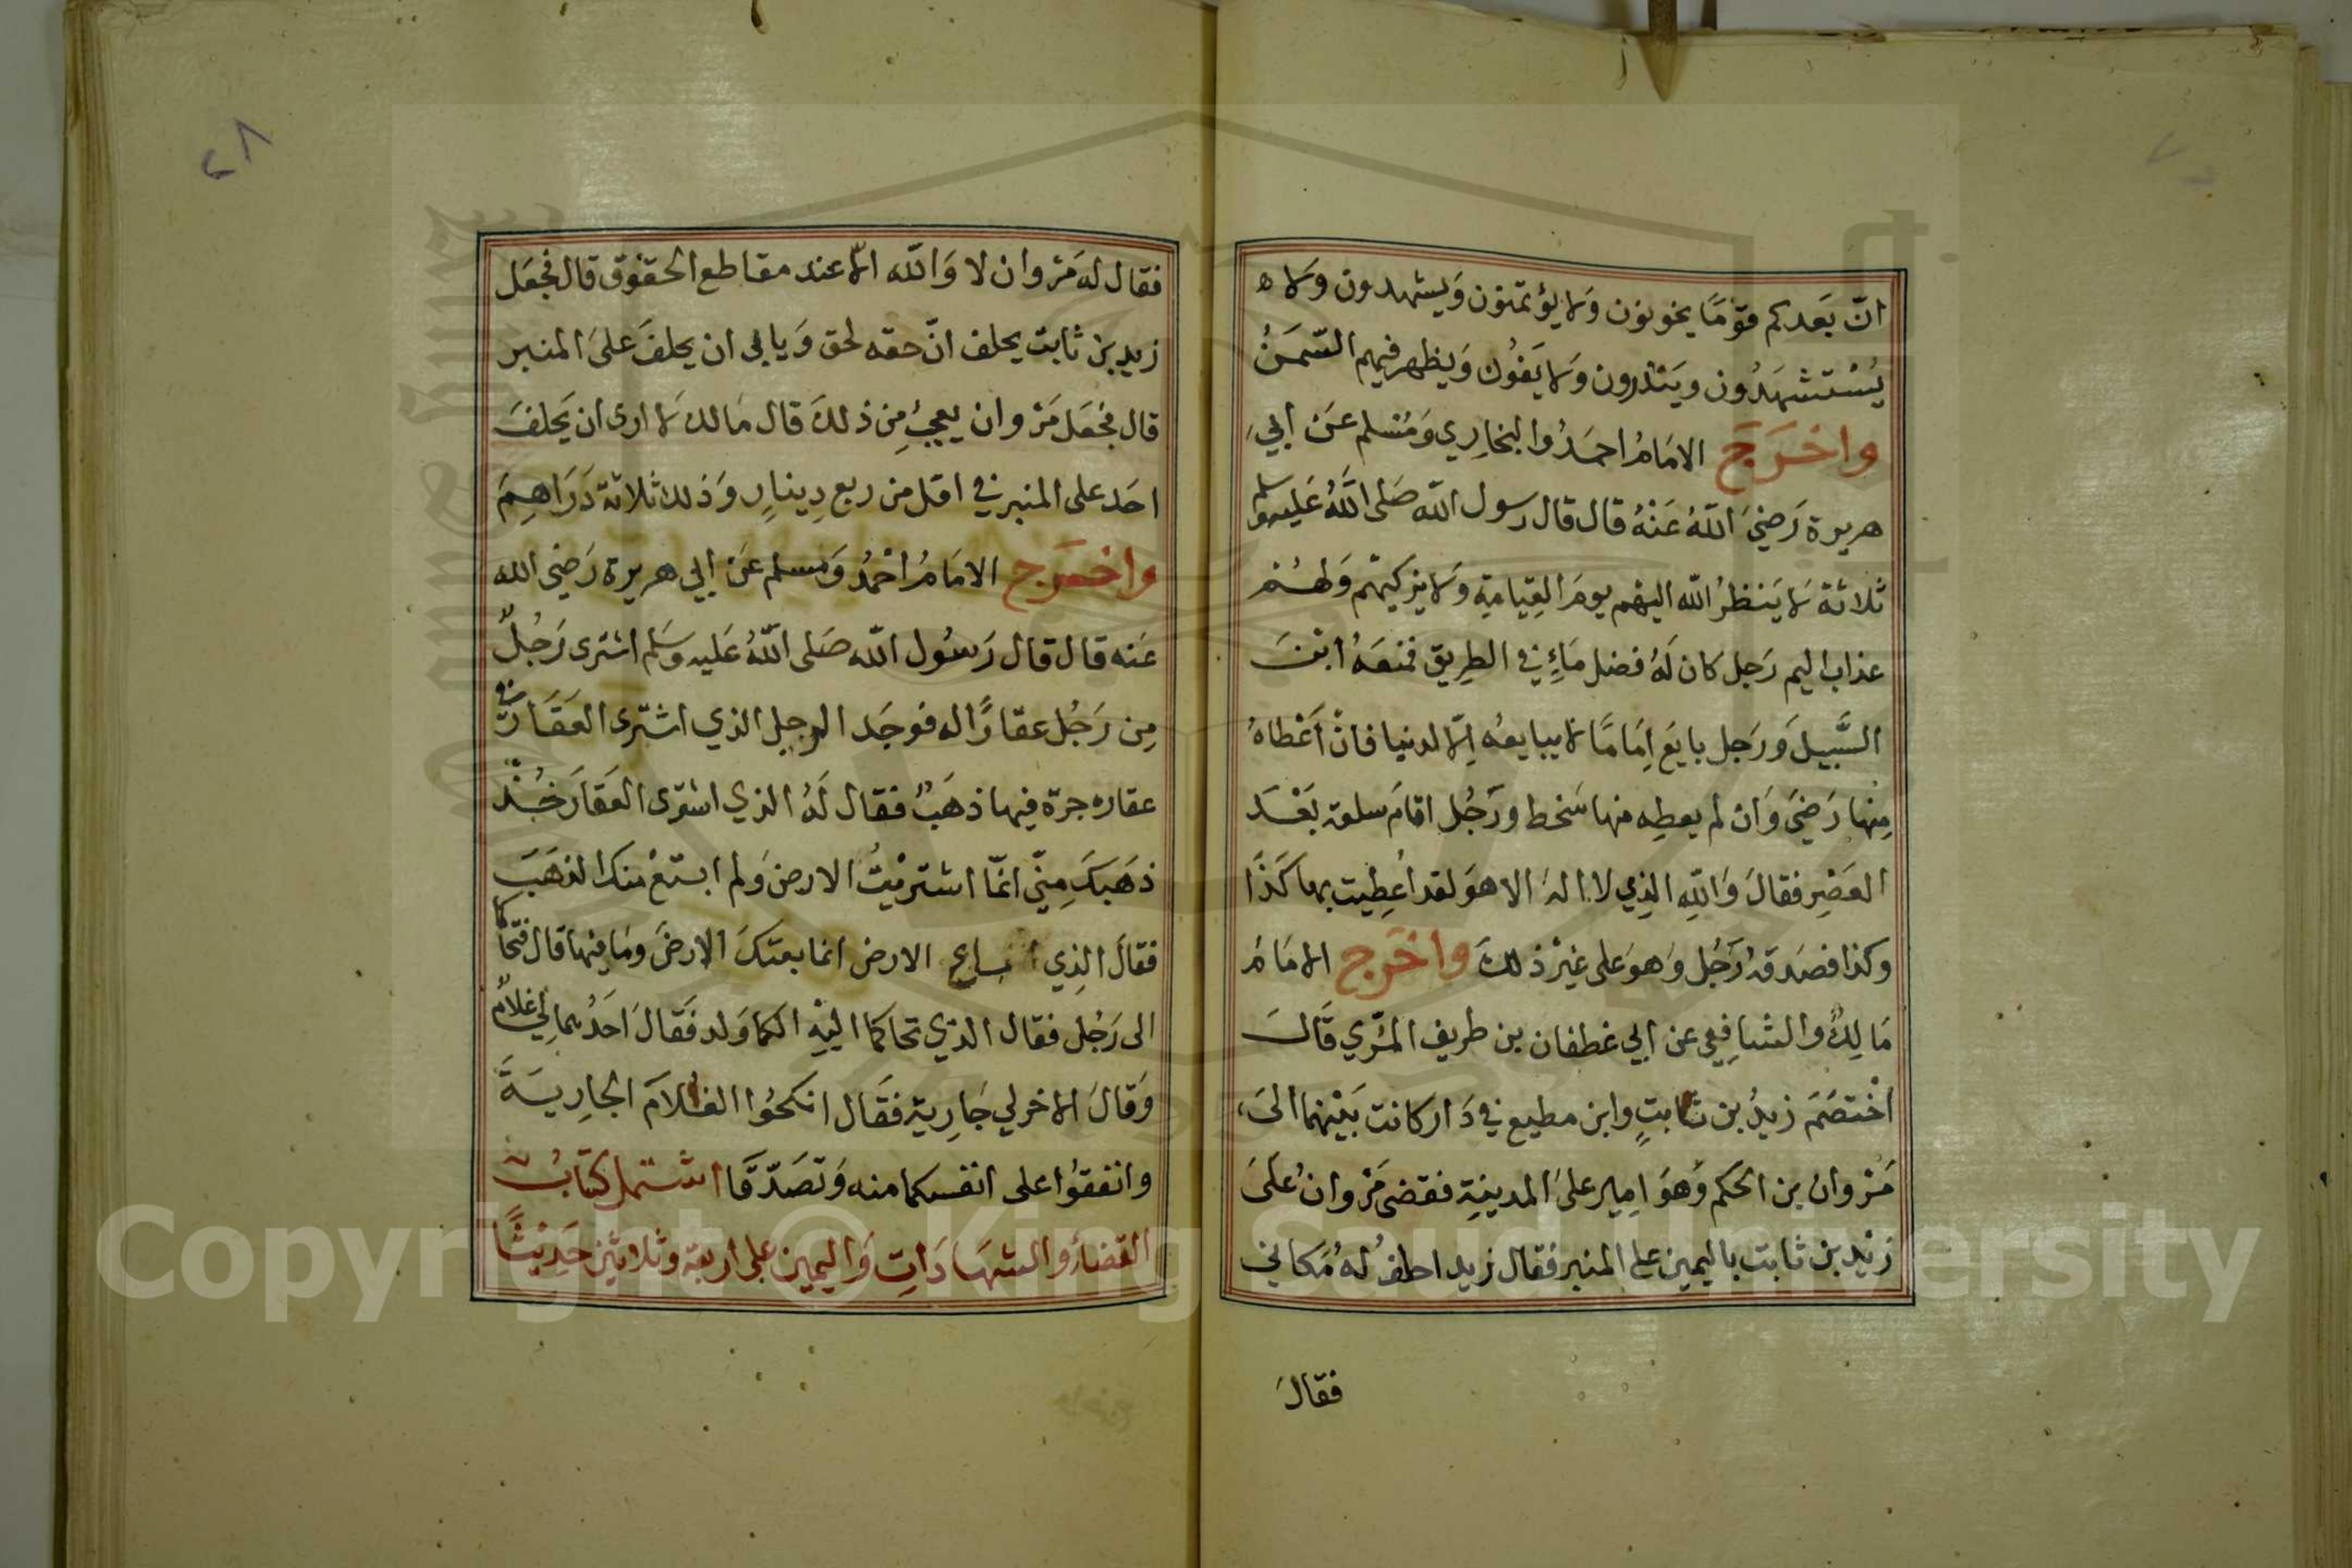 انّ بَعدكم قوْمًا يخونون وَلا يؤتمنون وَيشهدون وَلا ه
يُسْتشهَدُون وينذرون وَلا يَفوُن وَيظهر فيهم السّمَنُ
واخرَجَ الامَامُ احمَدُ والبخارِي وَمُسْلم عَن ابي
هريرة رَضيَ اللّهُ عَنْهُ قال قال رسول اللّه صَلى اللّهُ عَليه وسلم
ثلاثة لا يَنظرُ اللّه اليهْم يومَ القِيامَةِ وَلا يزكيهْم وَلهُم
عذاب اليم رَجل كان لَهُ فضل مَاءٍ في الطرِيق فمنعَهُ ابْنَ
السَّبيلَ وَرَجل بايَعَ اِمَامًا لا يبايعُه اِلّا لدنيا فانْ أعْطاهُ
مِنها رَضيَ وَان لم يعطِه منها سَخط ورَجُل اقامَ سلعة بَعْدَ
العَصْرِ فقالَ وَاللّهِ الذِي لا الهَ الا هوَ لقد اُعطِيت بها كَذَا
وكذا فصَدقهُ رَجُل وَهوَ على غيْر ذلكَ واخرج الامَامُ
مَالِكُ والشافِعي عن ابي غطفان بن طريف المُرّي قَالَ
اخْتصَمَ زيدُ بن ثابتٍ وابن مطيع في دَار كانت بَيْنهُمَا الىَ
مَرْوان بن الحَكم وَهوَ اميِر علىَ المدينةِ فقضى مَرْوانُ علىَ
زيْد بن ثابت باليمين على المنبر فقال زيد احلفُ لهُ مَكاني
فقالَ
٢٨
فقال لهَ مَرْوان لا وَاللّه الّا عند مقاطع الحقوُق قال فجعَل
زيد بن ثابت يحلف انّ حقه لحق وَيابى ان يحلفَ علىَ المنبر
قال فجعَل مَرْوان يعجبُ مِن ذلكَ قال مَالك لا ارى ان يَحلفَ
احَد على المنبر في اقل من ربع دِينارٍ وَذلك ثلاثة دَرَاهِمَ
واخرَج الامَامُ احْمُد وَمسلم عَن ابي هريرة رَضي الله
عَنه قال قال رَسوُل اللّه صَلى اللّهُ عَليه وسَلم اشترى رَجُلٌ
مِن رَجُل عقارًا له فوجَد الرجل الذي اشترى العَقَارَ في
عقاره جرة فيها ذهَبٌ فقال لَهُ الذي اشترى العَقَارَ خُذْ
ذهَبَكَ مِنّي انمّا اشتريْتُ الارضَ وَلم ابتعْ منكَ الذهَبَ
فقالَ الذِي باع الارض انما بعتكَ الارضَ ومَا فيها قال فتحاكما
الى رَجُل فقال الذي تحاكما اليْهِ الكما وَلد فقَالَ احَدُهما لي غلامٌ
وَقالَ الاخر لي جَارِية فقَال انكحُوا الغلامَ الجارِيَةَ
وانفقوُا على انفسكما منه وَتصَدّقَا اشتمل كتابُ
القضاءُ والشهَادَاتِ وَاليمين على اربعة وثلاثين حَدِيْثًا
Copyright © King Saud University